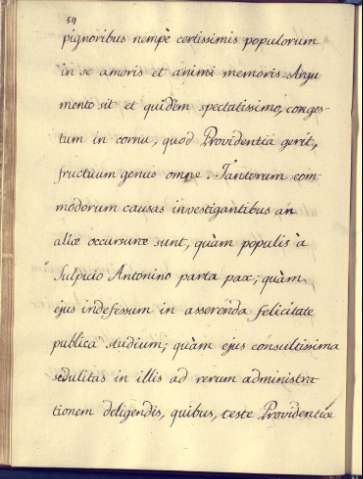 54
pignoribus nempè certissimis populorum
in se amoris et animi memoris. Argu
mento sit et quidem spectatissimo, conges-
tum in cornu, quod Providentia gerit,
fructuum genus omne. Tantorum com-
modorum causas investigantibus an
aliæ occursuræ sunt, quàm populis à
Sulpicio Antonino parta pax; quàm
ejus indefessum in asserenda felicitate
publicâ studium; quàm ejus consultissima
sedulitas in illis ad rerum administra
tionem deligendis, quibus, teste Providentiâ